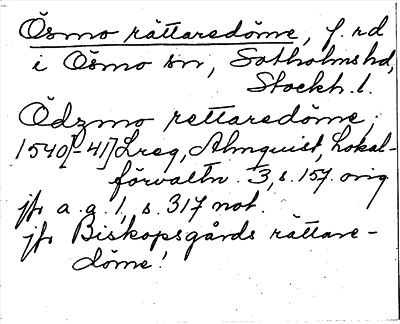 Ösmo rättaredöme, f. rd
i Ösmo sn, Sotholms hd,
Stockh. l.
Ödzmo rettaredöme,
1540[-41] Lreg, Almquist, Lokal-
förvaltn. 3, s. 157. orig
jfr a. a. 1, s. 317 not.
jfr Biskopsgårds rättare-
döme!